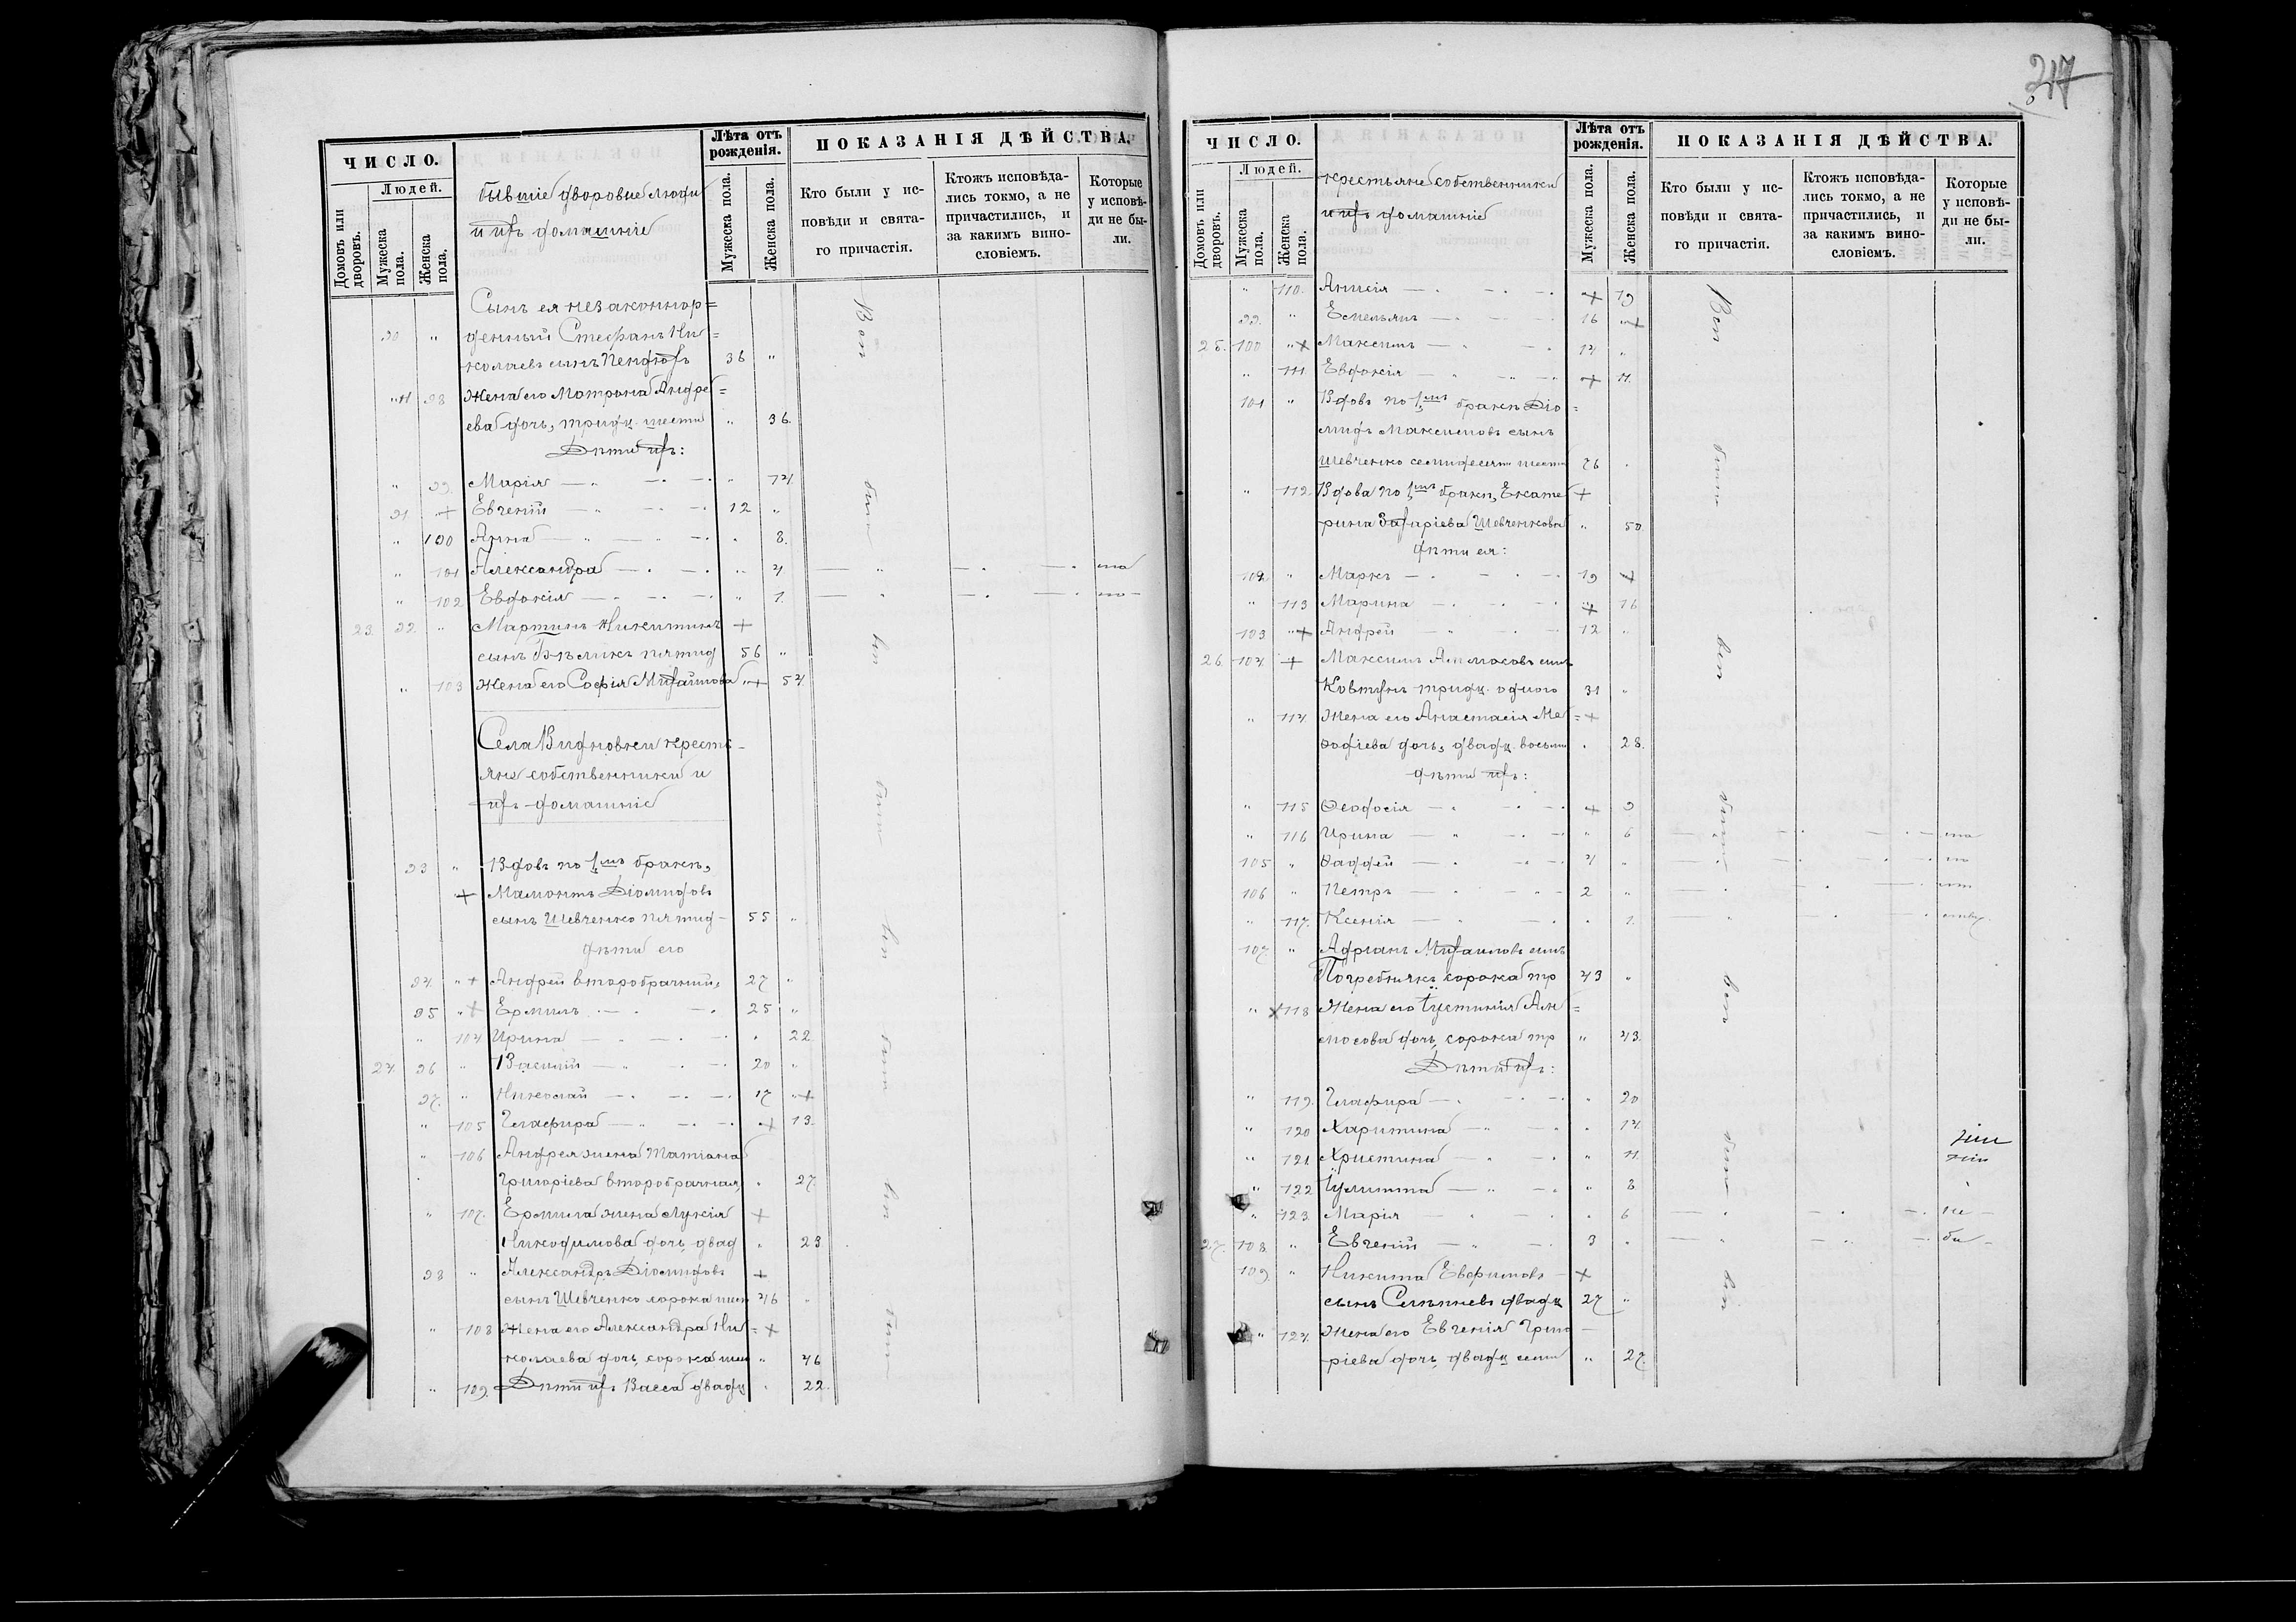 217
ЧИСЛО.
Лѣта отъ рожденія.
ПОКАЗАНІЯ ДѢЙСТВА.
Домовъ или дворовъ.
Людей.
Мужеска пола.
Женска пола.
бывшіе дворовые люди
и ихъ домашніе
Мужеска пола.
Женска пола.
Кто были у исповѣди и святаго причастія.
Ктожъ исповѣдались токмо, а не причастились, и за какимъ винословіемъ.
Которые у исповѣди не были.
Сынъ ея незаконнор=
90 " денный Стефанъ Ни=
колаевъ сынъ 36 "
" 98 Жена его Матрона Андре=
ева дочь, тридц. шести " 36.
Дѣти ихъ:
" 99. Марія " 14.
91 + Евгеній 12 "
" 100 Анна " 8.
" 101 Александра " 4
" 102 Евдокія " 1.
23. 92. " Мартинъ Никитинъ +
сынъ Бѣликъ пятид 56 "
" 103 Жена его Софія Михайлова " + 54.
Села Видновки кресть-
яне собственники и
ихъ домашніе
93 " Вдовъ по 1мъ бракѣ,
+ Мамонтъ Діомидовъ
сынъ Шевченко пятид- 55 "
дѣти его
94. " + Андрей второбрачный, 27 "
95 " + Ермилъ 25 "
" 104 Ирина " 22
24. 96 " Василій 20 "
97. " Николай 17 " +
" 105 Глафира + 13.
" 106 Андрея жена Татіана
Григоріева второбрачная, " 27.
" 107. Ермила жена Лукія +
Никодимова дочь двад " 23
98 " Александръ Діомидовъ +
сынъ Шевченко сорока шес 46 "
" 108 Жена его Александра Ни= +
колаева дочь, сорока шес " 46
" 109. Дѣти ихъ Васса двадц " 22.
ЧИСЛО.
Лѣта отъ рожденія.
ПОКАЗАНІЯ ДѢЙСТВА.
Домовъ или дворовъ.
Людей.
Мужеска пола.
Женска пола.
крестьяне собственники
и ихъ домашніе
Мужеска пола.
Женска пола.
Кто были у исповѣди и святаго причастія.
Ктожъ исповѣдались токмо, а не причастились, и за какимъ винословіемъ.
Которые у исповѣди не были.
" 110. Анисія + 19
99. " Емельянъ 16 " +
25. 100 " + Максимъ 14 "
" 111 Евдокія + 11.
101 " Вдовъ по 1мъ бракѣ Діо=
мидъ Максимовъ сынъ
Шевченко семидесяти шести 76
" 112. Вдова по 1мъ бракѣ, Екате +
рина Захаріева Шевченкова " 50.
дѣти ея:
102 " Маркъ 19 +
" 113 Марина + 16
103 " + Андрей 12 "
26. 104 + Максимъ сынъ
Ковтунъ тридц. одного 31 "
" 114. Жена его Анастасія Ме= +
ѳодіева дочь, двадц. восьми " 28.
дѣти ихъ:
" 115 Ѳеодосія + 9
" 116 Ирина " 6
105 " Фаддей 4 "
106 " Петръ 2 "
" 117. Ксенія " 1.
107. " Адріанъ Михаиловъ сынъ
Погребнякъ, сорока тр 43 "
" + 118 Жена его Іустинія Ам=
мосова дочь, сорока тр " 43.
Дѣти ихъ:
" 119. Глафира " 20
" 120 Харитина " 14.
" 121. Христина " 11
" 122 Іулитта " 8
" 123. Марія " 6 не
27. 108 " Евгеній 3 " бы
109. " Никита Евфимовъ +
сынъ двадц 27 "
" 124. Жена его Евгенія Григо
ріева дочь, двадц семи " 27.